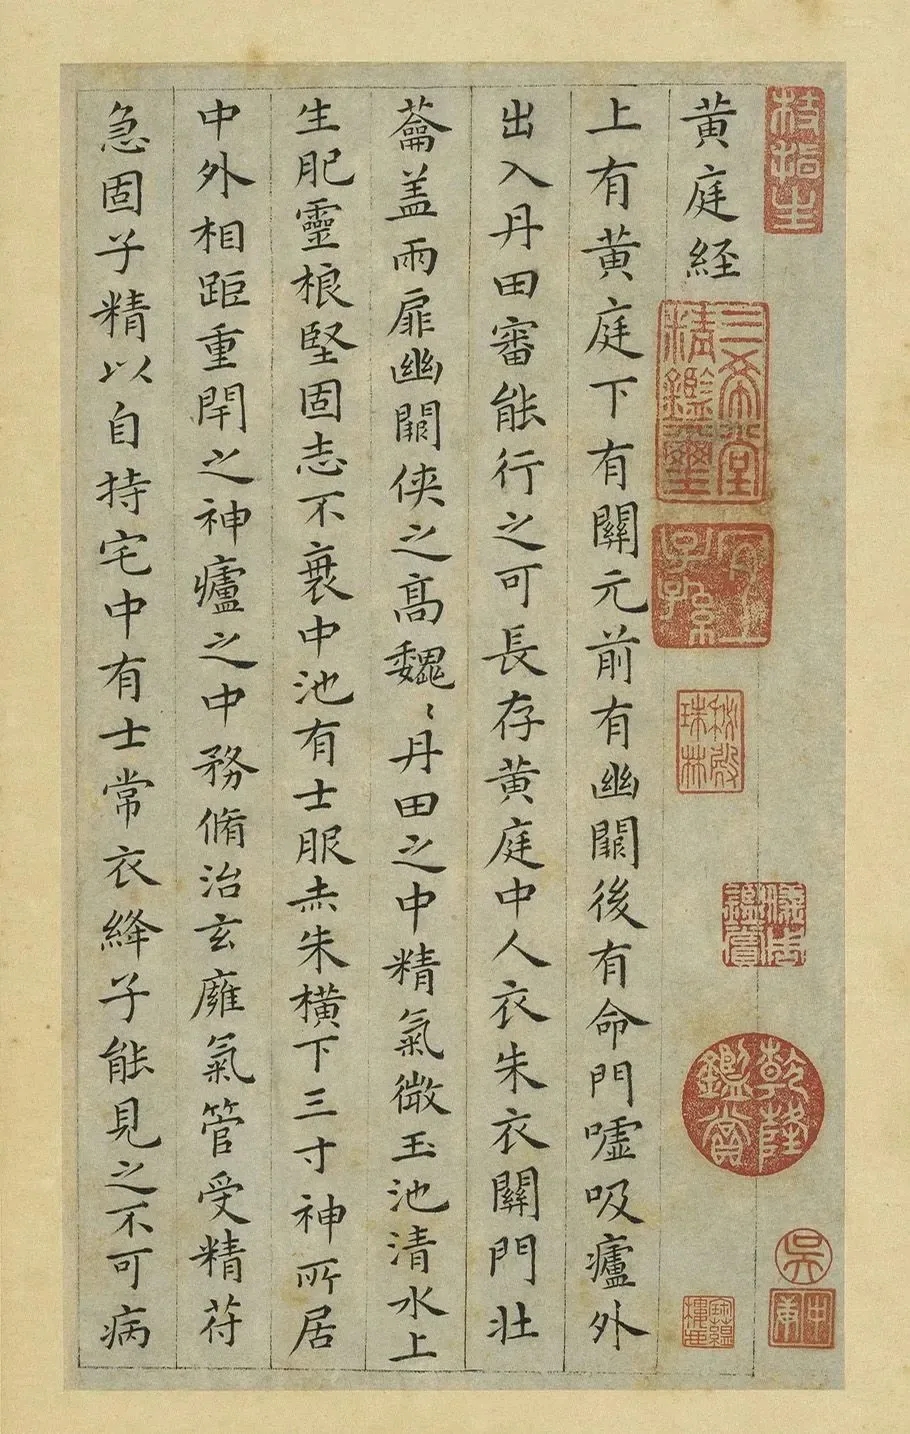 枝指生
黄庭経
三希堂精鑑璽
宜子孫
秘殿珠林
乾隆鑑賞
吳
上有黄庭下有關元前有幽闕後有命門嘘吸廬外
出入丹田審能行之可長存黄庭中人衣朱衣關門壮
蘥盖兩扉幽闕俠之高魏〻丹田之中精氣微玉池清水上
生肥靈根堅固志不衰中池有士服赤朱横下三寸神所居
中外相距重閇之神廬之中務脩治玄廱氣管受精苻
急固子精以自持宅中有士常衣絳子能見之不可病